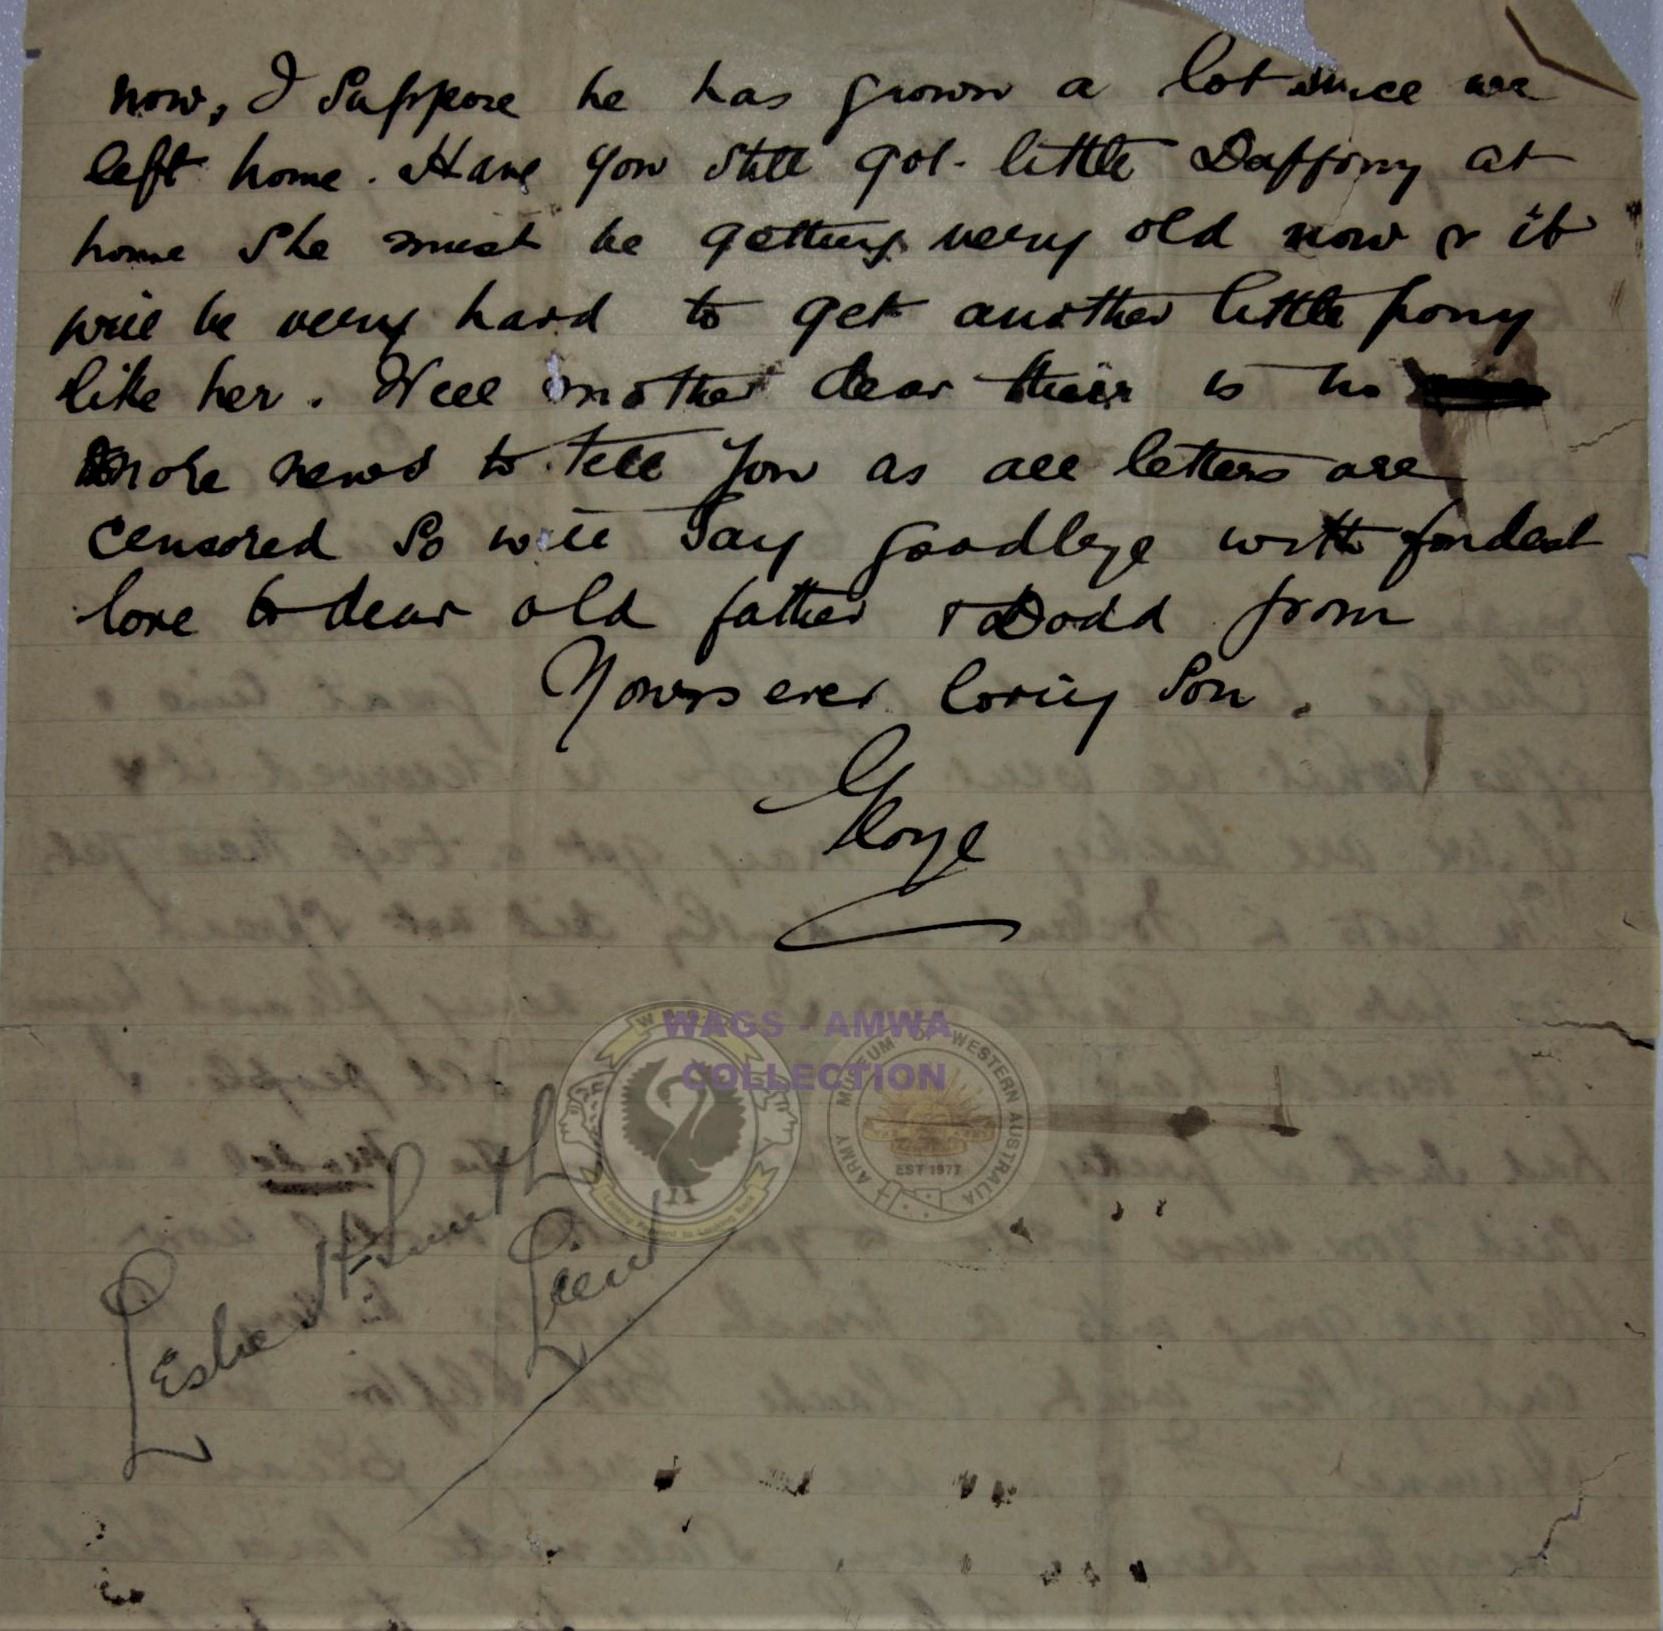 now, I Suppose he has grown a lot since we
left home. Have you still got little Daffony at
home She must be getting very old now & it
will be very hard to get another little pony
like her. Well mother dear their is no
more news to tell you as all letters are
censored So will Say goodbye with fondest
love to dear old father & Dodd from
Yours ever loving Son.
George
WAGS - AMWA
COLLECTION
ARMY MUSEUM OF WESTERN AUSTRALIA
EST 1977
Leslie H Smith
Lieut